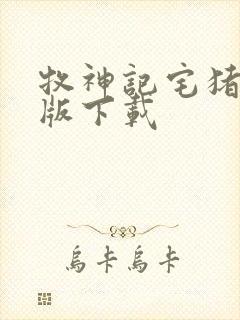 牧神記宅猪
版下載
烏卡烏卡